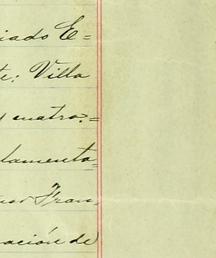 iado E=
te: Villa
y cuatro.=
lamento
Fran-
ación de